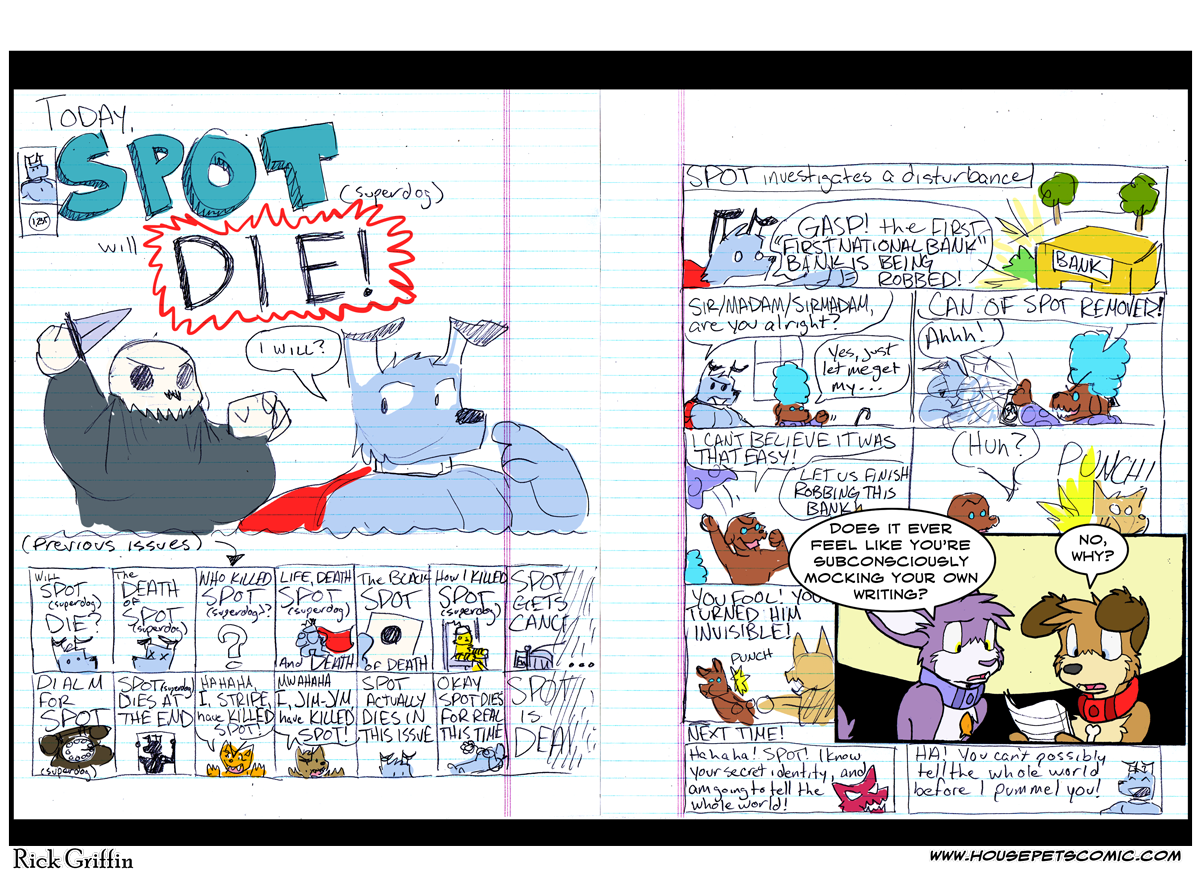 TODAY,
SPOT
(superdog)
will
DIE!
I WILL?
(Previous issues)
Will
SPOT
(superdog)
DIE?
The
DEATH
OF
SPOT
(superdog)
WHO KILLED
SPOT
(superdog)?
?
LIFE, DEATH
SPOT
(superdog)
And DEATH
The BLACK
SPOT
OF DEATH
How I KILLED
SPOT
(superdog)
SPOT
GETS
CANCE
...
DIAL M
FOR
SPOT
(superdog)
SPOT (superdog)
DIES AT
THE END
HAHAHA,
I, STRIPE,
have KILLED
SPOT!
MWAHAHA
I, JIM-JYM,
have KILLED
SPOT!
SPOT
ACTUALLY
DIES IN
THIS ISSUE
OKAY
SPOT DIES
FOR REAL
THIS TIME
SPOT
IS
DEAD
SPOT investigates a disturbance
GASP! the FIRST
"FIRST NATIONAL BANK"
BANK IS BEING
ROBBED!
BANK
SIR/MADAM/SIRMADAM,
are you alright?
Yes, just
let me get
my...
CAN OF SPOT REMOVER!
Ahhh!
I CAN'T BELIEVE IT WAS
THAT EASY!
LET US FINISH
ROBBING THIS
BANK
(Huh?)
PUNCH!
YOU FOOL! YOU
TURNED HIM
INVISIBLE!
PUNCH
DOES IT EVER
FEEL LIKE YOU'RE
SUBCONSCIOUSLY
MOCKING YOUR OWN
WRITING?
NO,
WHY?
NEXT TIME!
Hahaha! SPOT! I know
your secret identity, and
am going to tell the
whole world!
HA! You can't possibly
tell the whole world
before I pummel you!
Rick Griffin
WWW.HOUSEPETSCOMIC.COM